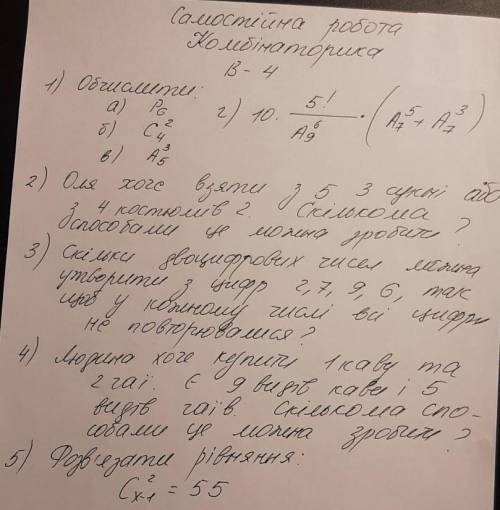 Самостійна робота
Комбінаторика
В-4
1) Обчислити:
а) P₆
б) C₄²
в) A₅³
г) 10 · 5!/A₉⁶ · (A₇⁵ + A₇³)
2) Оля хоче взяти з 5 3 сукні або
з 4 костюмів 2. Скількома
способами це можна зробити?
3) Скільки двоцифрових чисел можна
утворити з цифр 2, 7, 9, 6, так
щоб у кожному числі всі цифри
не повторювалися?
4) Людина хоче купити 1 каву та
2 чаї. Є 9 видів кави і 5
видів чаїв. Скількома спо-
собами це можна зробити?
5) Розв'язати рівняння:
C²ₓ₋₁ = 55